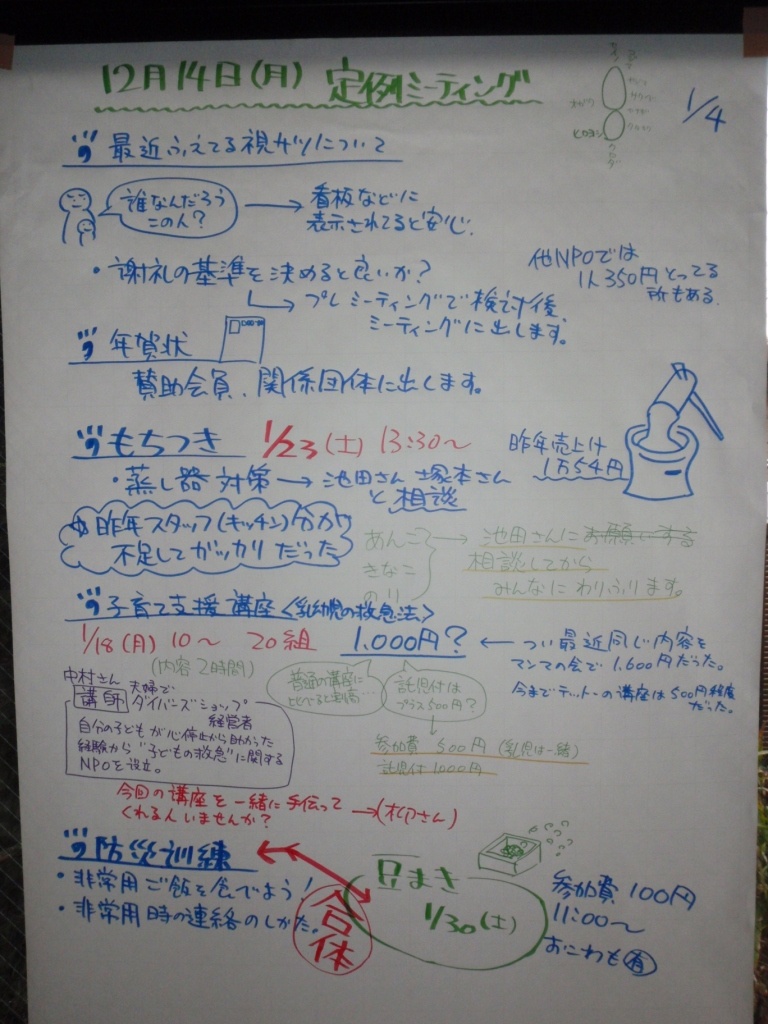 12月14日(月) 定例ミーティング
1/4
ヒロヨシ
最近ふえてる視サツについて
誰なんだろう
この人?
→ 看板などに
表示されてると安心。
・謝礼の基準を決めると良いか?
他NPOでは
1人350円とってる
所もある。
プレミーティングで検討後、
ミーティングに出します。
年賀状
賛助会員、関係団体に出します。
もちつき 1/23(土) 13:30〜
昨年売上げ
1万54円
・蒸し器対策 → 池田さん 塚本さん
と相談
昨年スタッフ(キッチン)分が
不足してガッカリだった
あんこ
きなこ
のり
→ 池田さんにお願いする
相談してから
みんなにわりふります。
子育て支援講座〈乳幼児の救急法〉
1/18(月) 10〜 20組 1,000円?
← つい最近同じ内容を
マンマの会で1,600円だった。
今までテットーの講座は500円程度
だった。
(内容2時間)
普通の講座に
比べると割高…
託児付は
プラス500円?
参加費 500円 (乳児は一緒)
託児付 1000円
中村さん 夫婦で
講師 ダイバーズショップ
経営者
自分の子どもが心停止から助かった
経験から"子どもの救急"に関する
NPOを設立。
今回の講座を一緒に手伝って
くれる人いませんか?
→(松下さん)
防災訓練
・非常用ご飯を食べよう!
・非常用時の連絡のしかた。
合体
豆まき
1/30(土)
参加費 100円
11:00〜
おこわも有